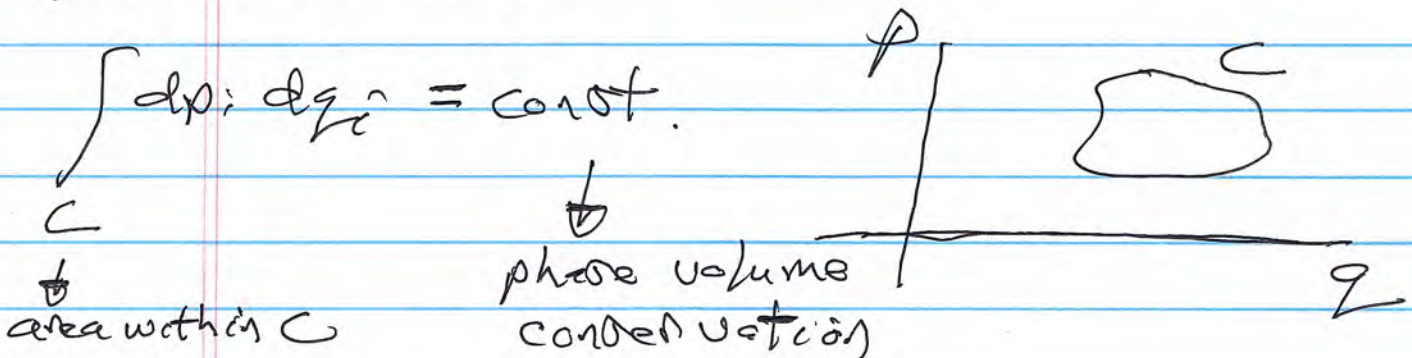 ∫_C dp_i dq_i = const.
↓ ↓
area within C
phase volume
conservation
p
C
q